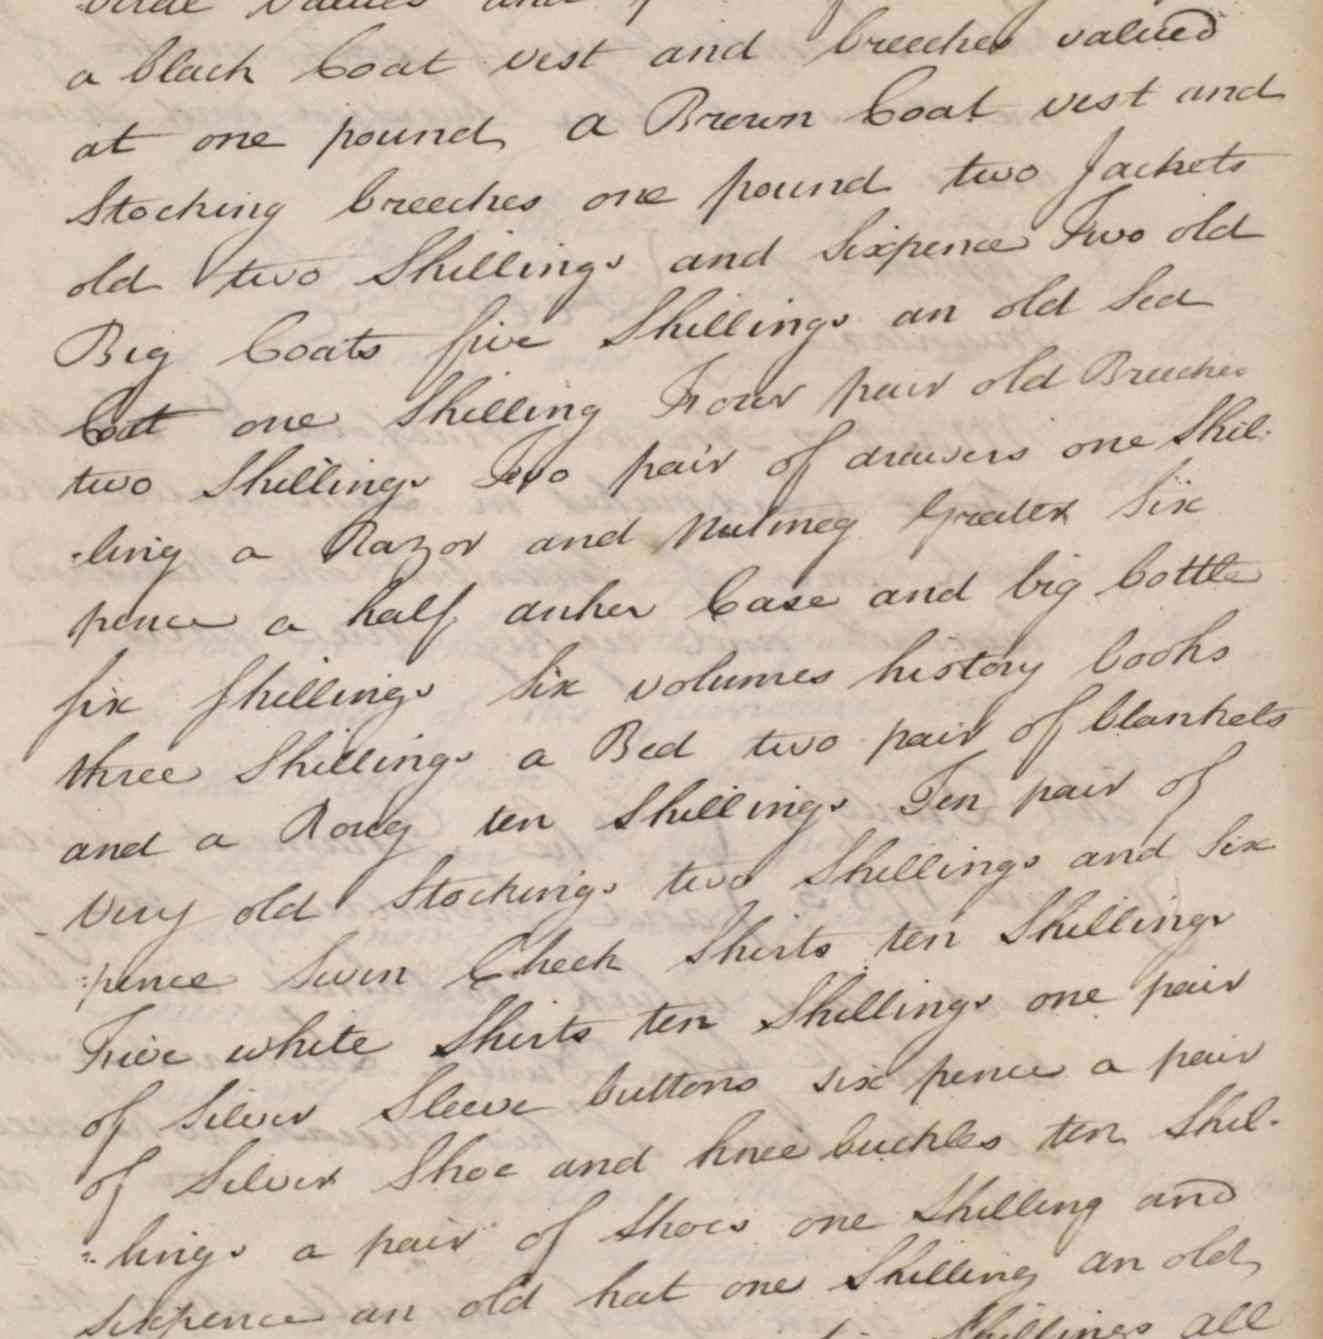 a black Coat vest and breeches valued
at one pound, a Brown Coat vest and
Stocking breeches one pound two Jackets
old two Shillings and Sixpence Two old
Big Coats five Shillings an old Sea
Coat one Shilling Four pair old Breeches
two Shillings Two pair of drawers one Shil-
-ling a Razor and Nutmeg Greater Six
pence a half anker Case and big bottle
six shillings Six volumes history books
three Shillings a Bed two pair of blankets
and a Roug ten Shillings Ten pair of
very old Stockings two Shillings and Six
:pence Seven Check Shirts ten Shillings
Five white Shirts ten Shillings one pair
of Silver Sleeve buttons six pence a pair
of Silver Shoe and knee buckles ten Shil-
:lings a pair of Shoes one Shilling and
sixpence an old hat one Shilling an old
Shillings all